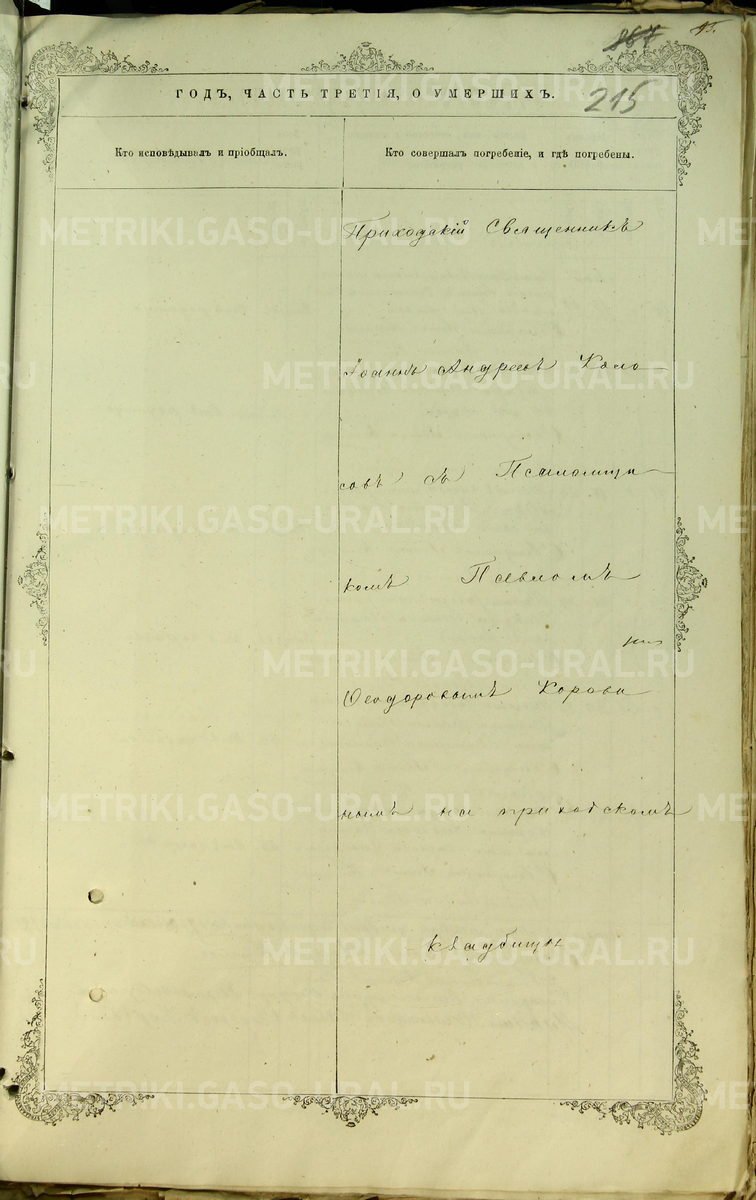 867
215
ГОДЪ, ЧАСТЬ ТРЕТІЯ, О УМЕРШИХЪ.
Кто исповѣдывалъ и пріобщалъ.
Кто совершалъ погребеніе, и гдѣ погребены.
Приходскій Священникъ
Іоаннъ Андреевъ Коло-
совъ съ Псаломщи-
комъ Павломъ
Ѳеодоровымъ Корови
нымъ на приходскомъ
кладбищѣ
METRIKI.GASO-URAL.RU